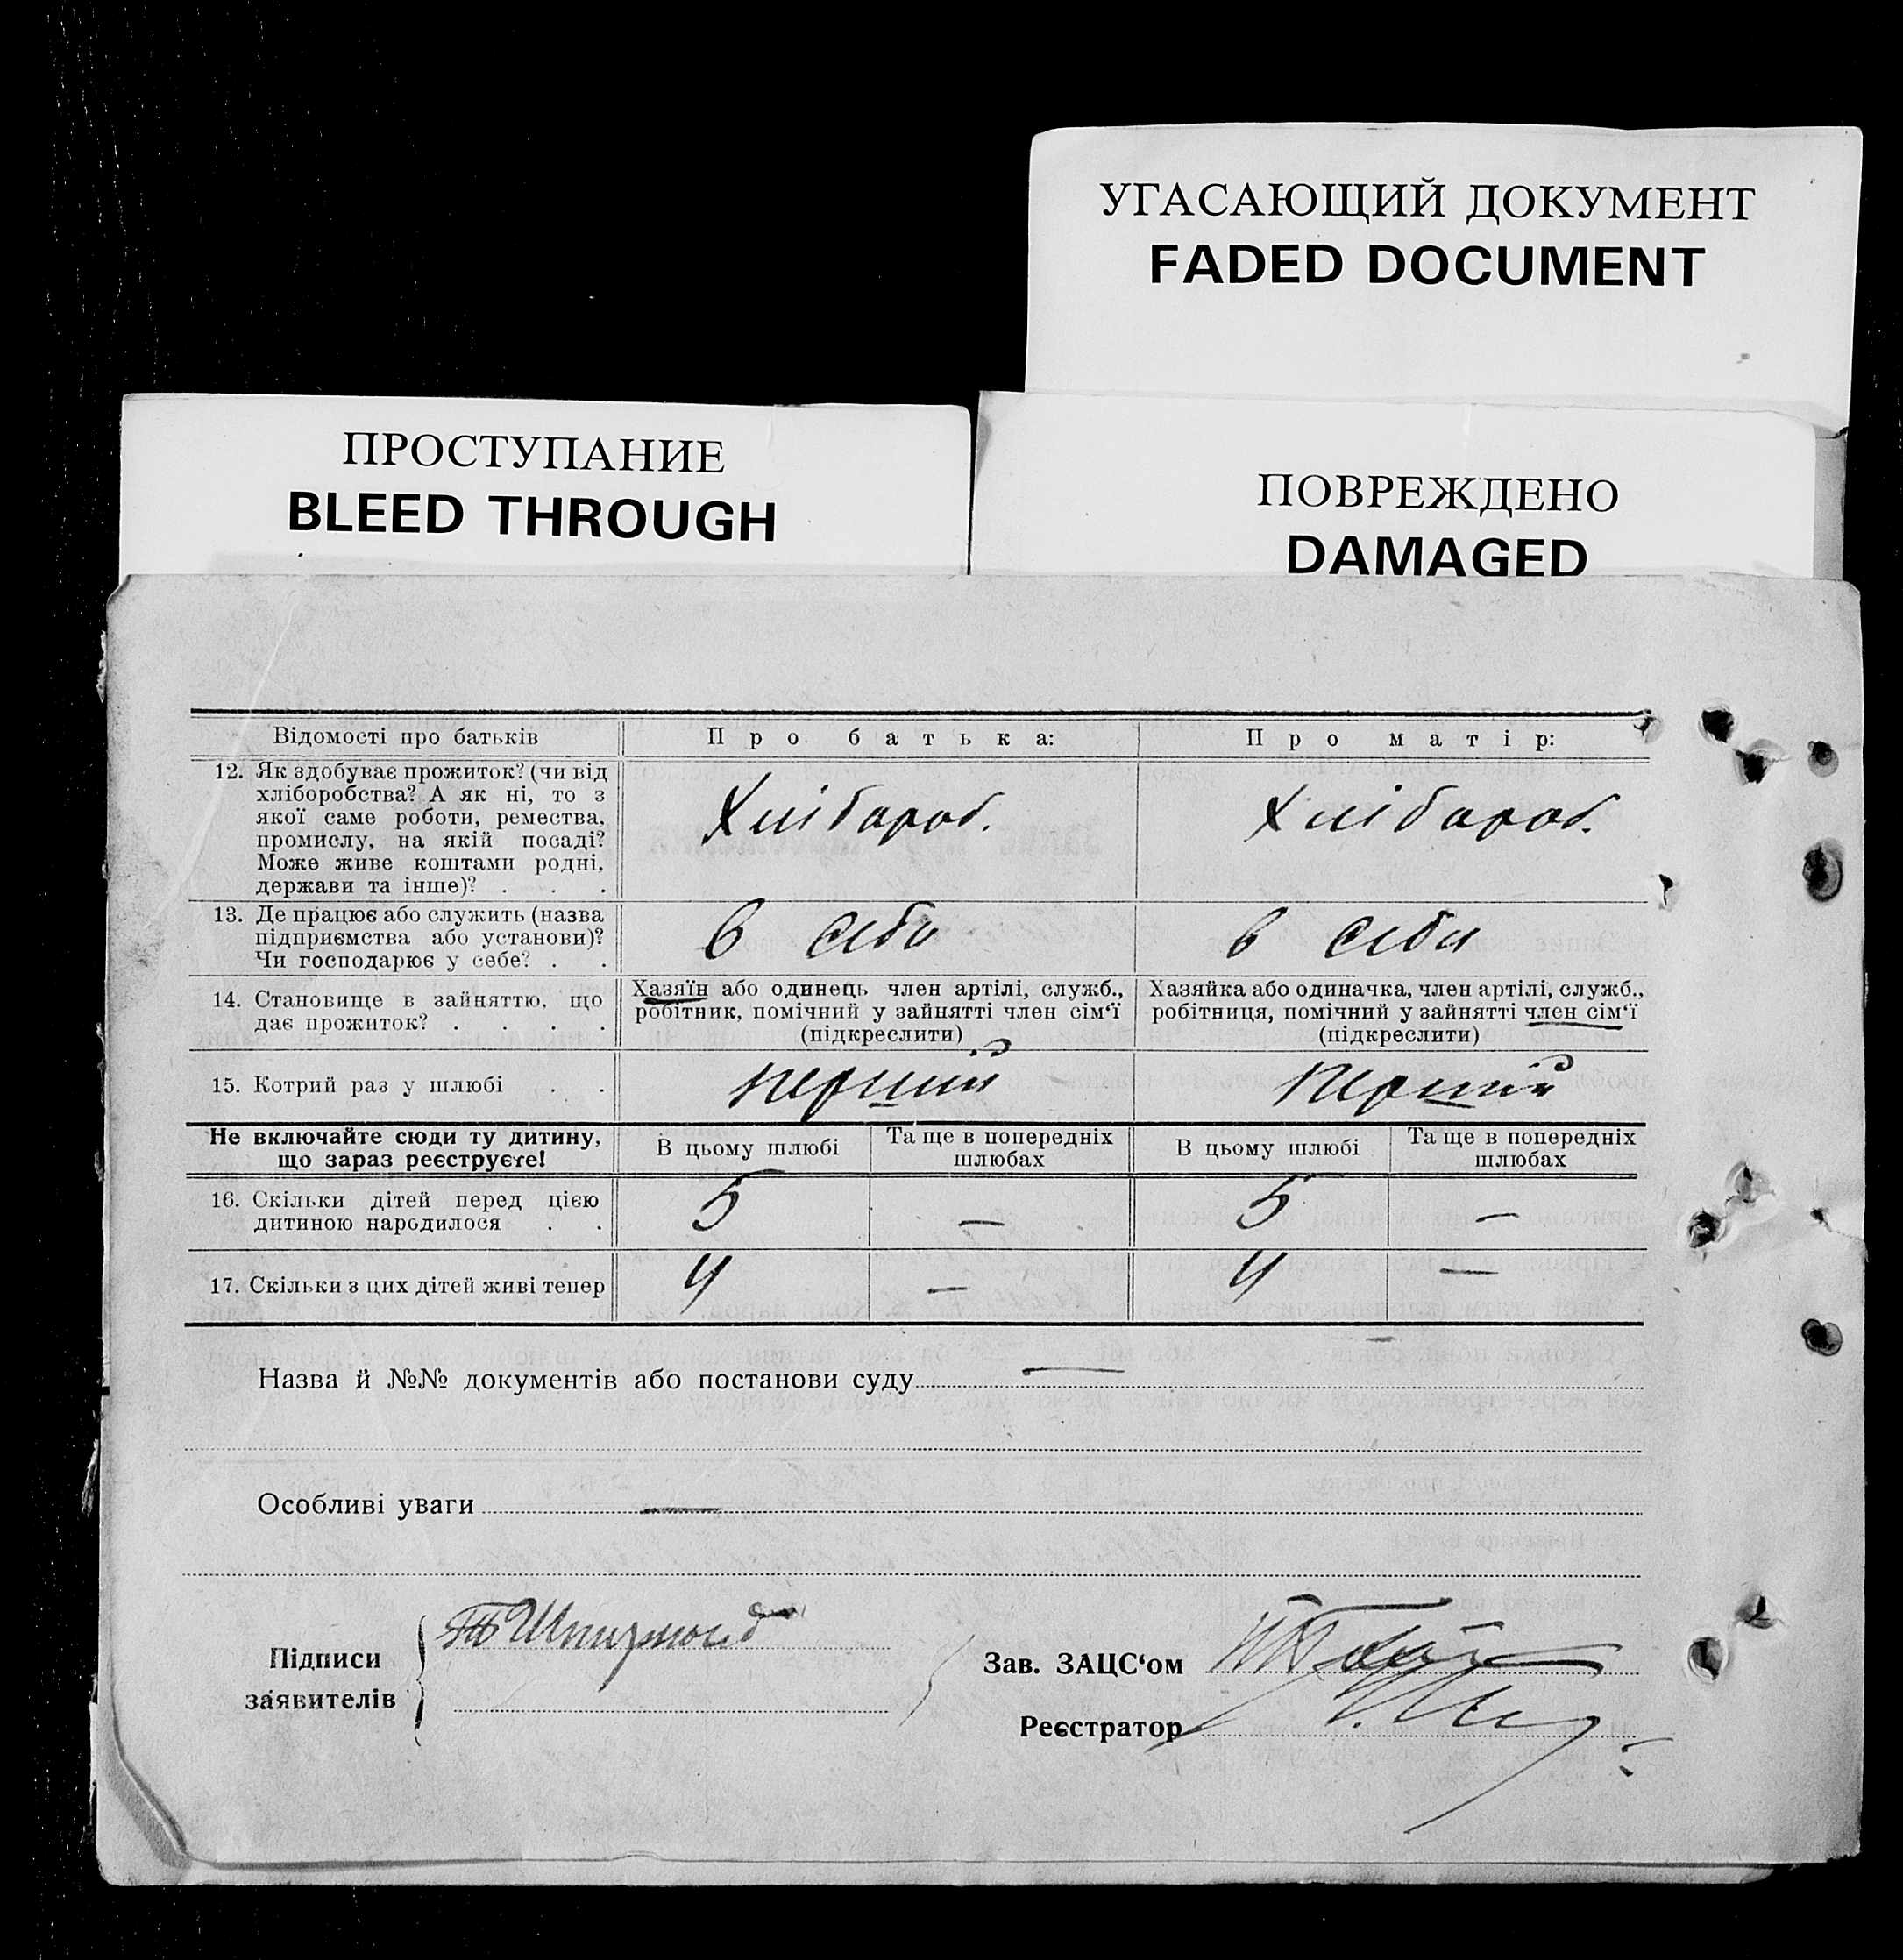 УГАСАЮЩИЙ ДОКУМЕНТ
FADED DOCUMENT
ПРОСТУПАНИЕ
BLEED THROUGH
ПОВРЕЖДЕНО
DAMAGED
Відомості про батьків
Про батька:
Про матір:
12. Як здобуває прожиток? (чи від
хліборобства? А як ні, то з
якої саме роботи, ремества,
промислу, на якій посаді?
Може живе коштами родні,
держави та інше)? . . .
Хлібороб.
Хлібороб.
13. Де працює або служить (назва
підприємства або установи)?
Чи господарює у себе? . .
в себе
в себе
14. Становище в зайняттю, що
дає прожиток? . . . .
Хазяїн або одинець член артілі, служб.,
робітник, помічний у зайнятті член сім‘ї
(підкреслити)
Хазяйка або одиначка, член артілі, служб.,
робітниця, помічний у зайнятті член сім‘ї
(підкреслити)
15. Котрий раз у шлюбі . .
перший
перший
Не включайте сюди ту дитину,
що зараз реєструєте!
В цьому шлюбі
Та ще в попередніх
шлюбах
В цьому шлюбі
Та ще в попередніх
шлюбах
16. Скільки дітей перед цією
дитиною народилося . .
5
—
5
—
17. Скільки з цих дітей живі тепер
4
—
4
—
Назва й №№ документів або постанови суду —
Особливі уваги —
Підписи
заявителів
Зав. ЗАЦС‘ом
Реєстратор